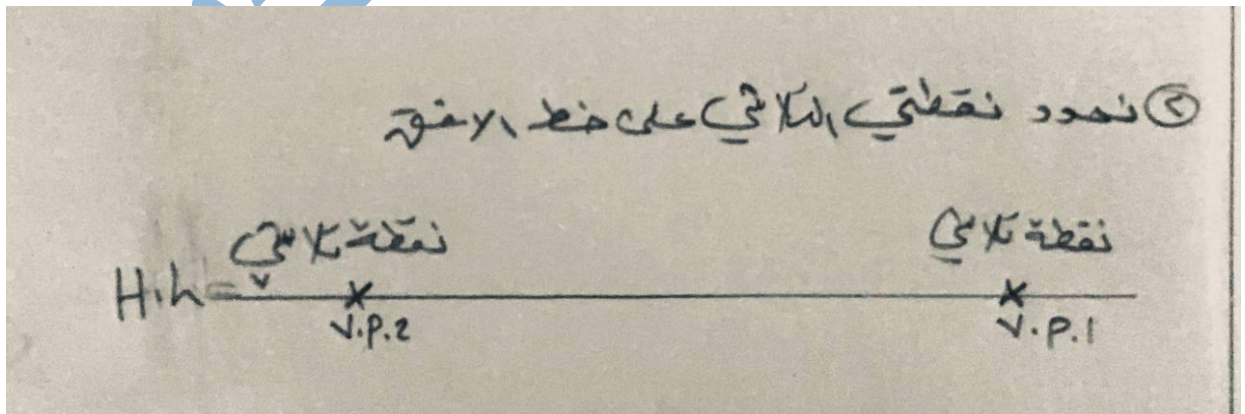 ② نحدد نقطتي التلاشي على خط الافق
نقطة تلاشي
نقطة تلاشي
H.h=
V.P.2
V.P.1